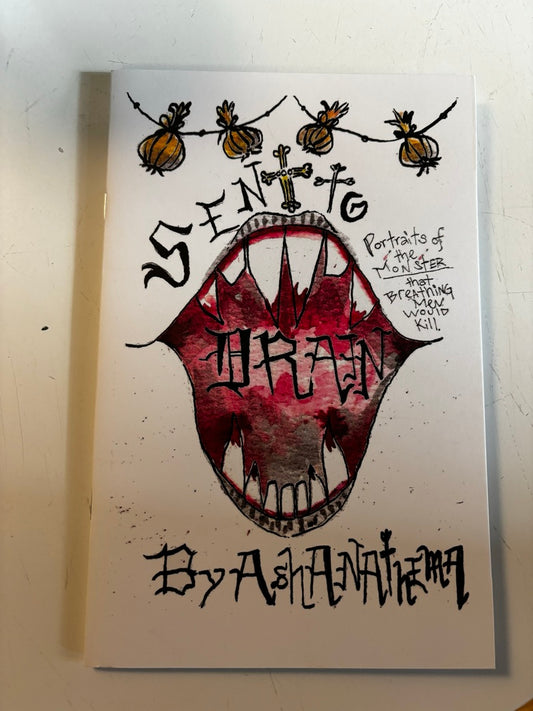 DRAIN
Portraits of
the
MONSTER
that
BREATHING
MEN
WOULD
Kill.
By AshANAThEMA